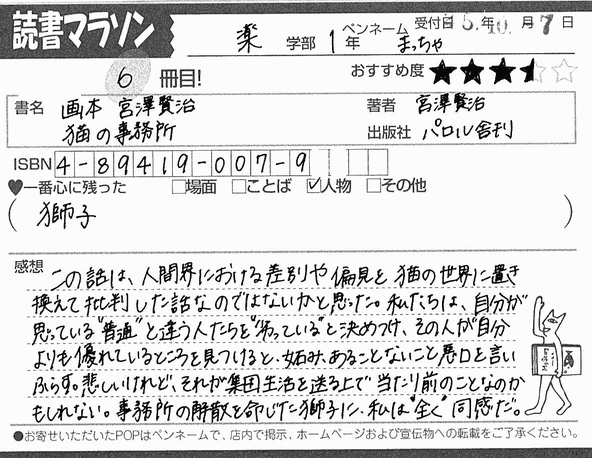 読書マラソン
薬 学部 1年 ペンネーム まっちゃ 受付日 5年10月7日
6 冊目! おすすめ度 ★★★
書名 画本 宮澤賢治 著者 宮澤賢治
猫の事務所 出版社 パロル舎刊
ISBN 4-89419-007-9
♥一番心に残った □場面 □ことば ☑人物 □その他
( 獅子 )
感想 この話は、人間界における差別や偏見を猫の世界に置き
換えて批判した話なのではないかと思った。私たちは、自分が
思っている"普通"と違う人たちを"劣っている"と決めつけ、その人が自分
よりも優れているところを見つけると、妬み、あることないこと悪口を言い
ふらす。悲しいけれど、それが集団生活を送る上で当たり前のことなのか
もしれない。事務所の解散を命じた獅子に、私は"全く"同感だ。
●お寄せいただいたPOPはペンネームで、店内で掲示、ホームページおよび宣伝物への転載をご了承ください。